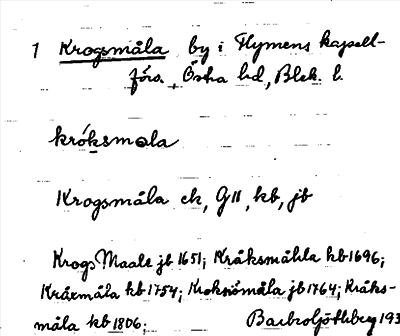 1 Krogsmåla by i Flymens kapell-
förs., Östra hd, Blek. l.
króksmola
Krogsmåla ek, GII, kb, jb
Krogs Maale jb 1651; Kråksmåhla kb 1696;
Kråxmåla kb 1754; Kroksmåla jb 1764; Kråks-
måla kb 1806;
193